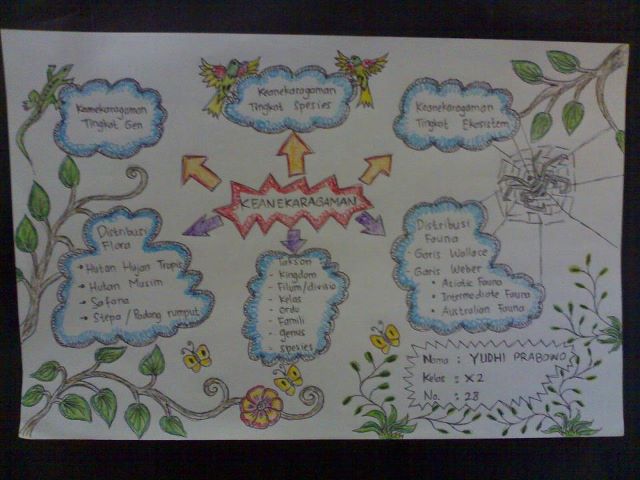 Keanekaragaman
Tingkat Gen
Keanekaragaman
Tingkat Spesies
Keanekaragaman
Tingkat Ekosistem
KEANEKARAGAMAN
Distribusi
Flora
• Hutan Hujan Tropis
• Hutan Musim
• Safana
• Stepa / Padang rumput
Takson
- Kingdom
- Filum/divisio
- Kelas
- ordo
- Famili
- genus
- spesies
Distribusi
Fauna
Garis Wallace
Garis Weber
• Asiatic Fauna
• Intermediate Fauna
• Australian Fauna
Nama : YUDHI PRABOWO
Kelas : X2
No. : 28